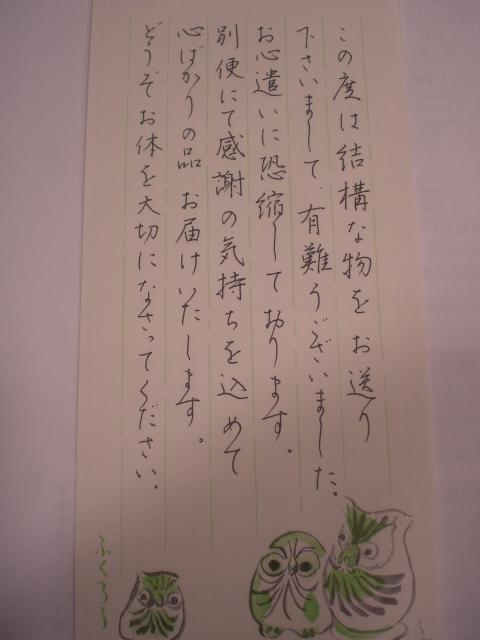 この度は結構な物をお送り
下さいまして、有難うございました。
お心遣いに恐縮しております。
別便にて感謝の気持ちを込めて
心ばかりの品 お届けいたします。
どうぞお体を大切になさってください。
ふくろう